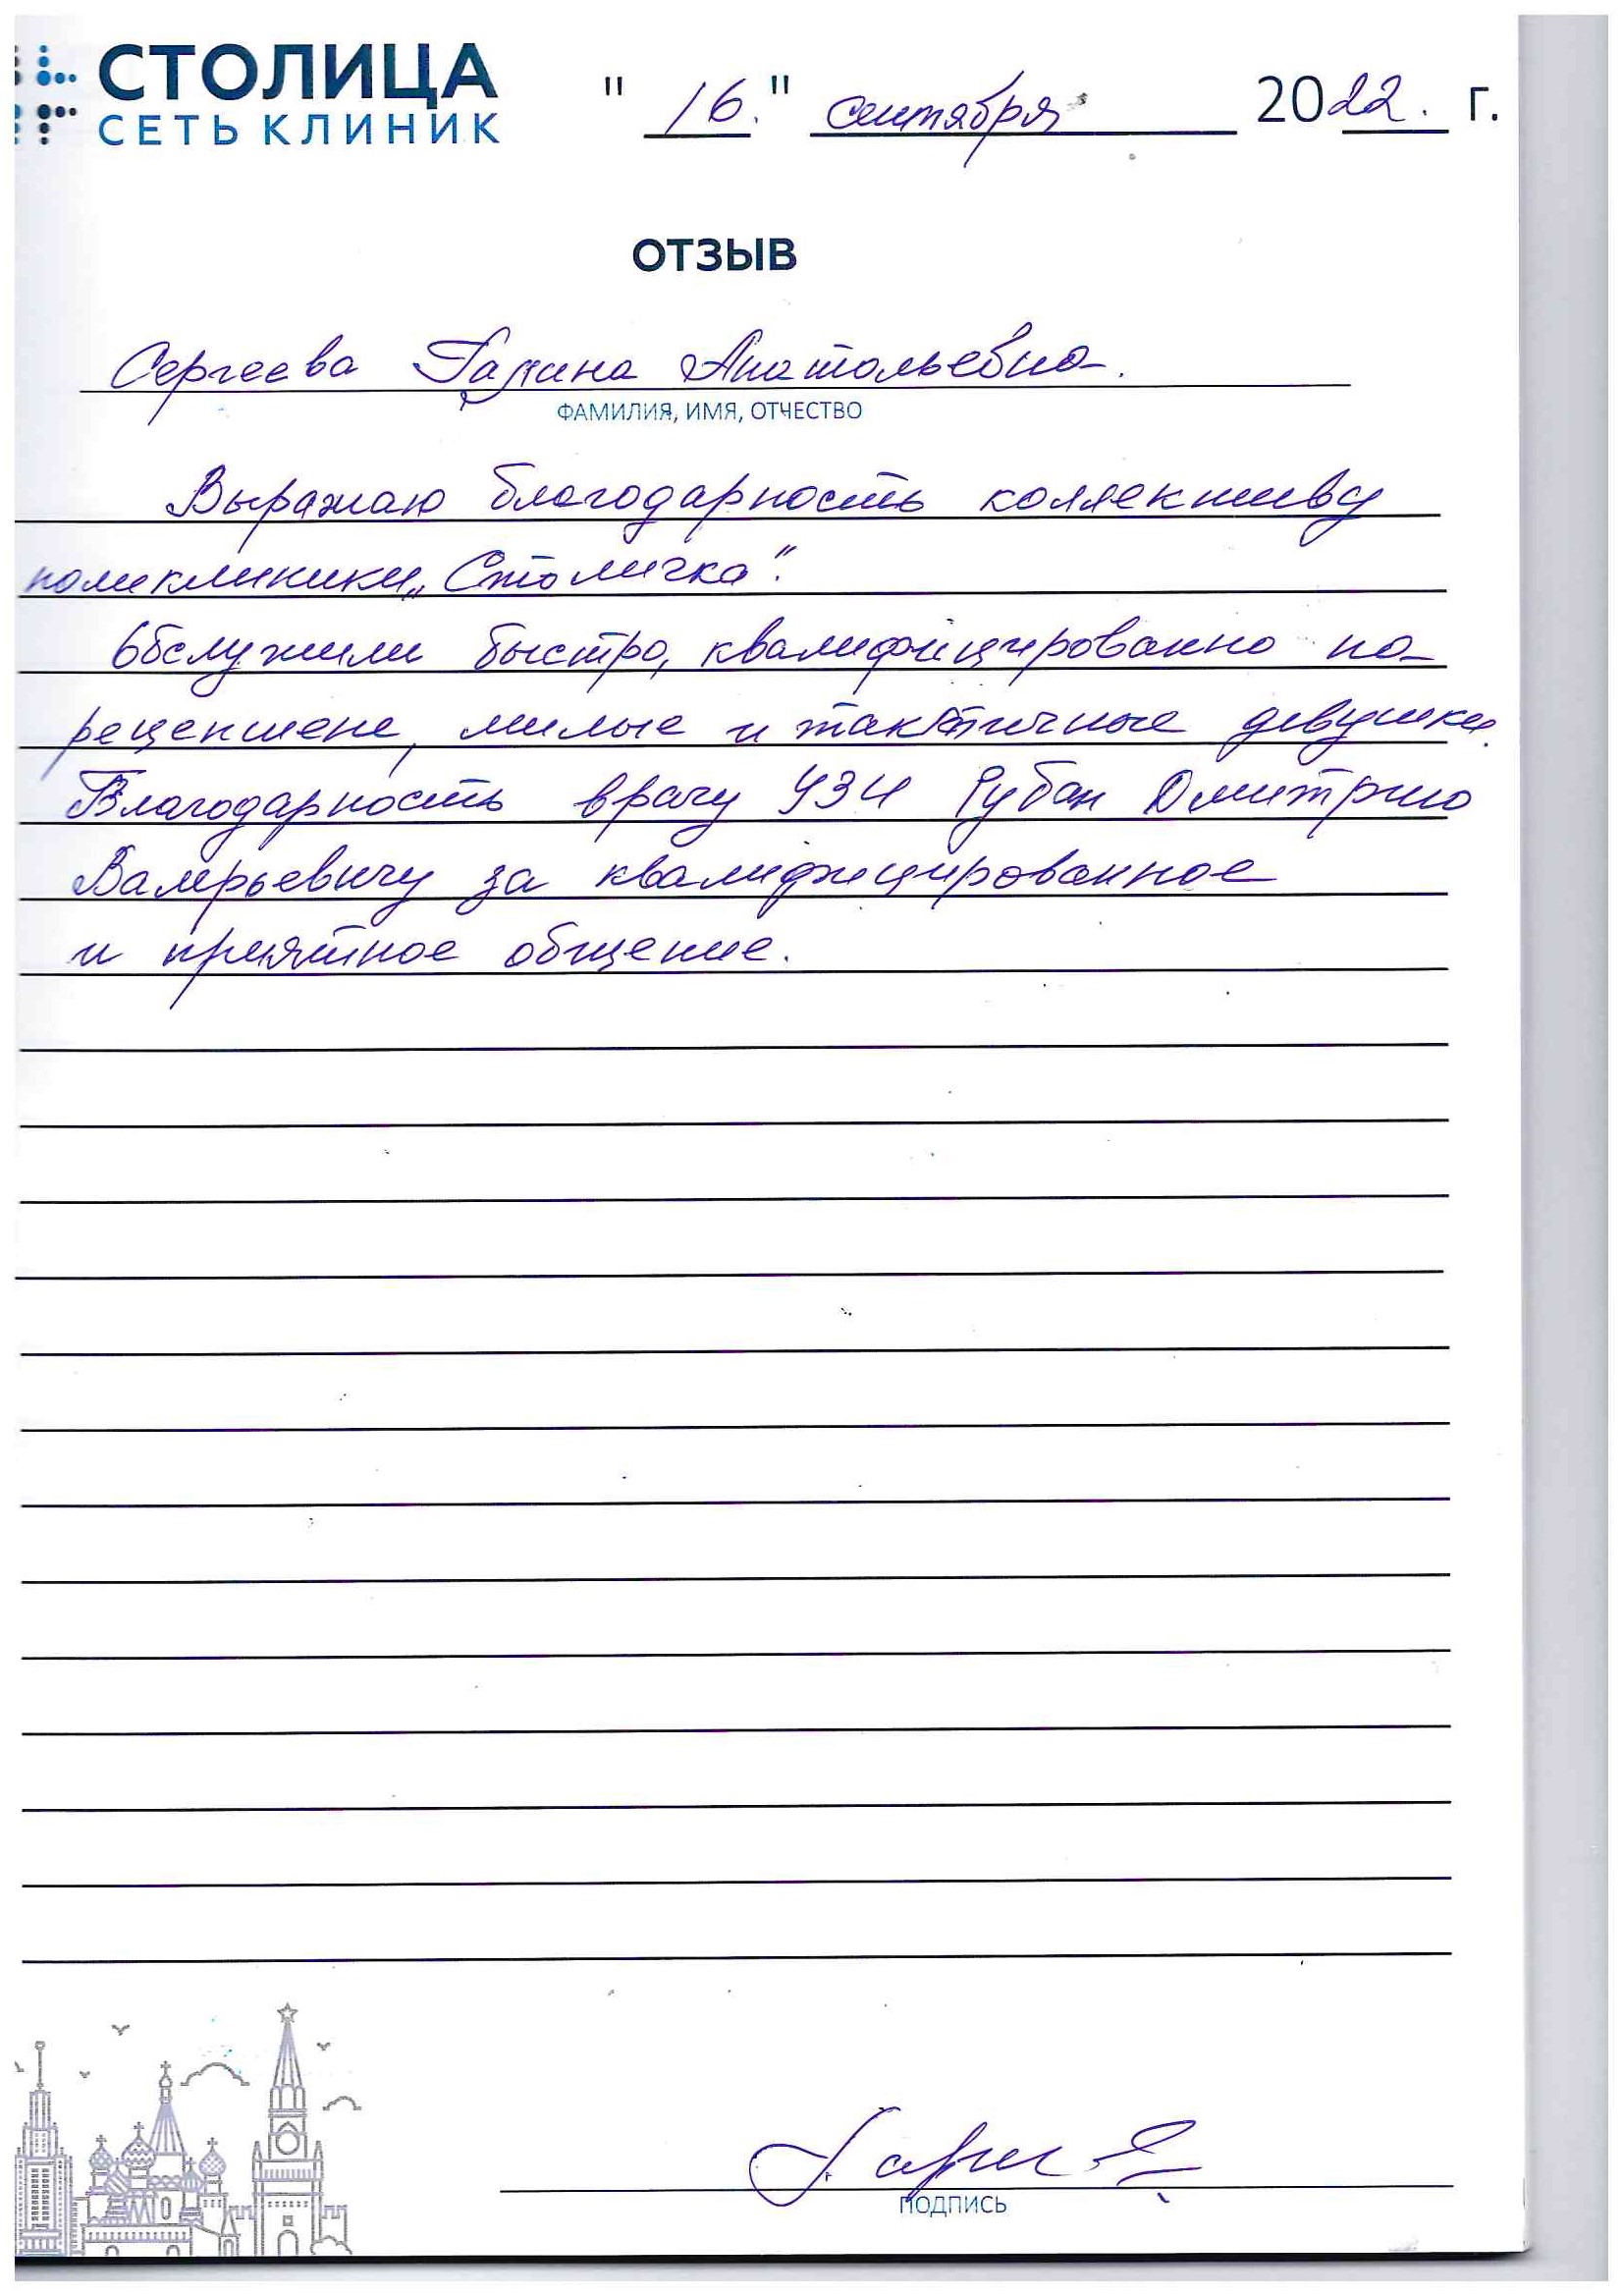 СТОЛИЦА
СЕТЬ КЛИНИК
" 16. " сентября 2022. г.
ОТЗЫВ
Сергеева Галина Анатольевна.
ФАМИЛИЯ, ИМЯ, ОТЧЕСТВО
Выражаю благодарность коллективу
поликлиники „Столичка".
Обслужили быстро, квалифицированно на
рецепшене, милые и тактичные девушки.
Благодарность врачу УЗИ Рубан Дмитрию
Валерьевичу за квалифицированное
и приятное общение.
ПОДПИСЬ